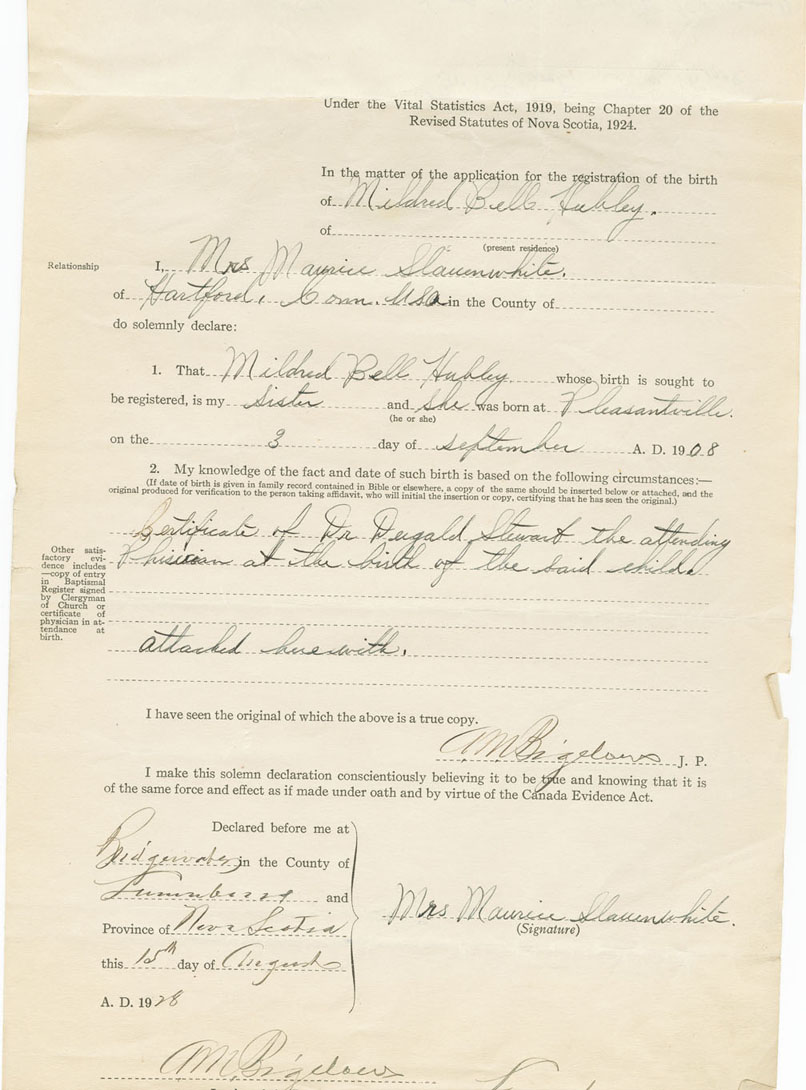 Under the Vital Statistics Act, 1919, being Chapter 20 of the
Revised Statutes of Nova Scotia, 1924.
In the matter of the application for the registration of the birth
of Mildred Bell Hubley.
of
(present residence)
Relationship
I, Mrs Maurice Slauenwhite.
of Hartford, Conn. USA in the County of
do solemnly declare:
1. That Mildred Bell Hubley whose birth is sought to
be registered, is my sister and she was born at Pleasantville.
(he or she)
on the 3 day of september A. D. 1908
2. My knowledge of the fact and date of such birth is based on the following circumstances:—
(If date of birth is given in family record contained in Bible or elsewhere, a copy of the same should be inserted below or attached, and the
original produced for verification to the person taking affidavit, who will initial the insertion or copy, certifying that he has seen the original.)
Certificate of Dr Dugald Stewart the attending
Phisician at the birth of the said child
Other satis-
factory evi-
dence includes
—copy of entry
in Baptismal
Register signed
by Clergyman
of Church or
certificate of
physician in at-
tendance at
birth.
attached herewith.
I have seen the original of which the above is a true copy.
A M Bigelow J. P.
I make this solemn declaration conscientiously believing it to be true and knowing that it is
of the same force and effect as if made under oath and by virtue of the Canada Evidence Act.
Declared before me at
Bridgewater in the County of
Lunenburg and
Province of Nova Scotia
this 15th day of August
A. D. 1928
Mrs Maurice Slauenwhite.
(Signature)
A M Bigelow